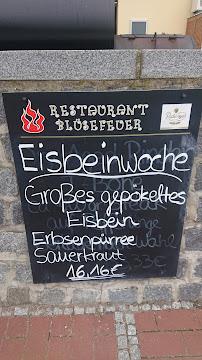 RESTAURANT
BLÜSEFEUER
Eisbeinwoche
Großes gepökeltes
Eisbein
Erbsenpürree
Sauerkraut
16,16€
33€